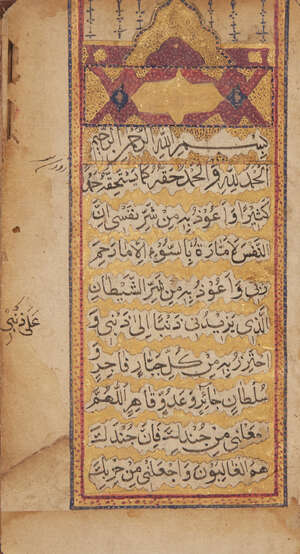 بسم الله الرحمن الرحيم
الحمد لله والحمد حقه كما يستحقه حمدا
كثيرا و اعوذ به من شر نفسي ان
النفس لامارة بالسوء الا ما رحم
ربي و اعوذ به من شر الشيطان
الذي يزيدني ذنبا الى ذنبي و
احترز به من كل جبار فاجر و
سلطان جائر و عدو قاهر اللهم
اجعلني من جندك فان جندك
هم الغالبون و اجعلني من حزبك
على ذنبي